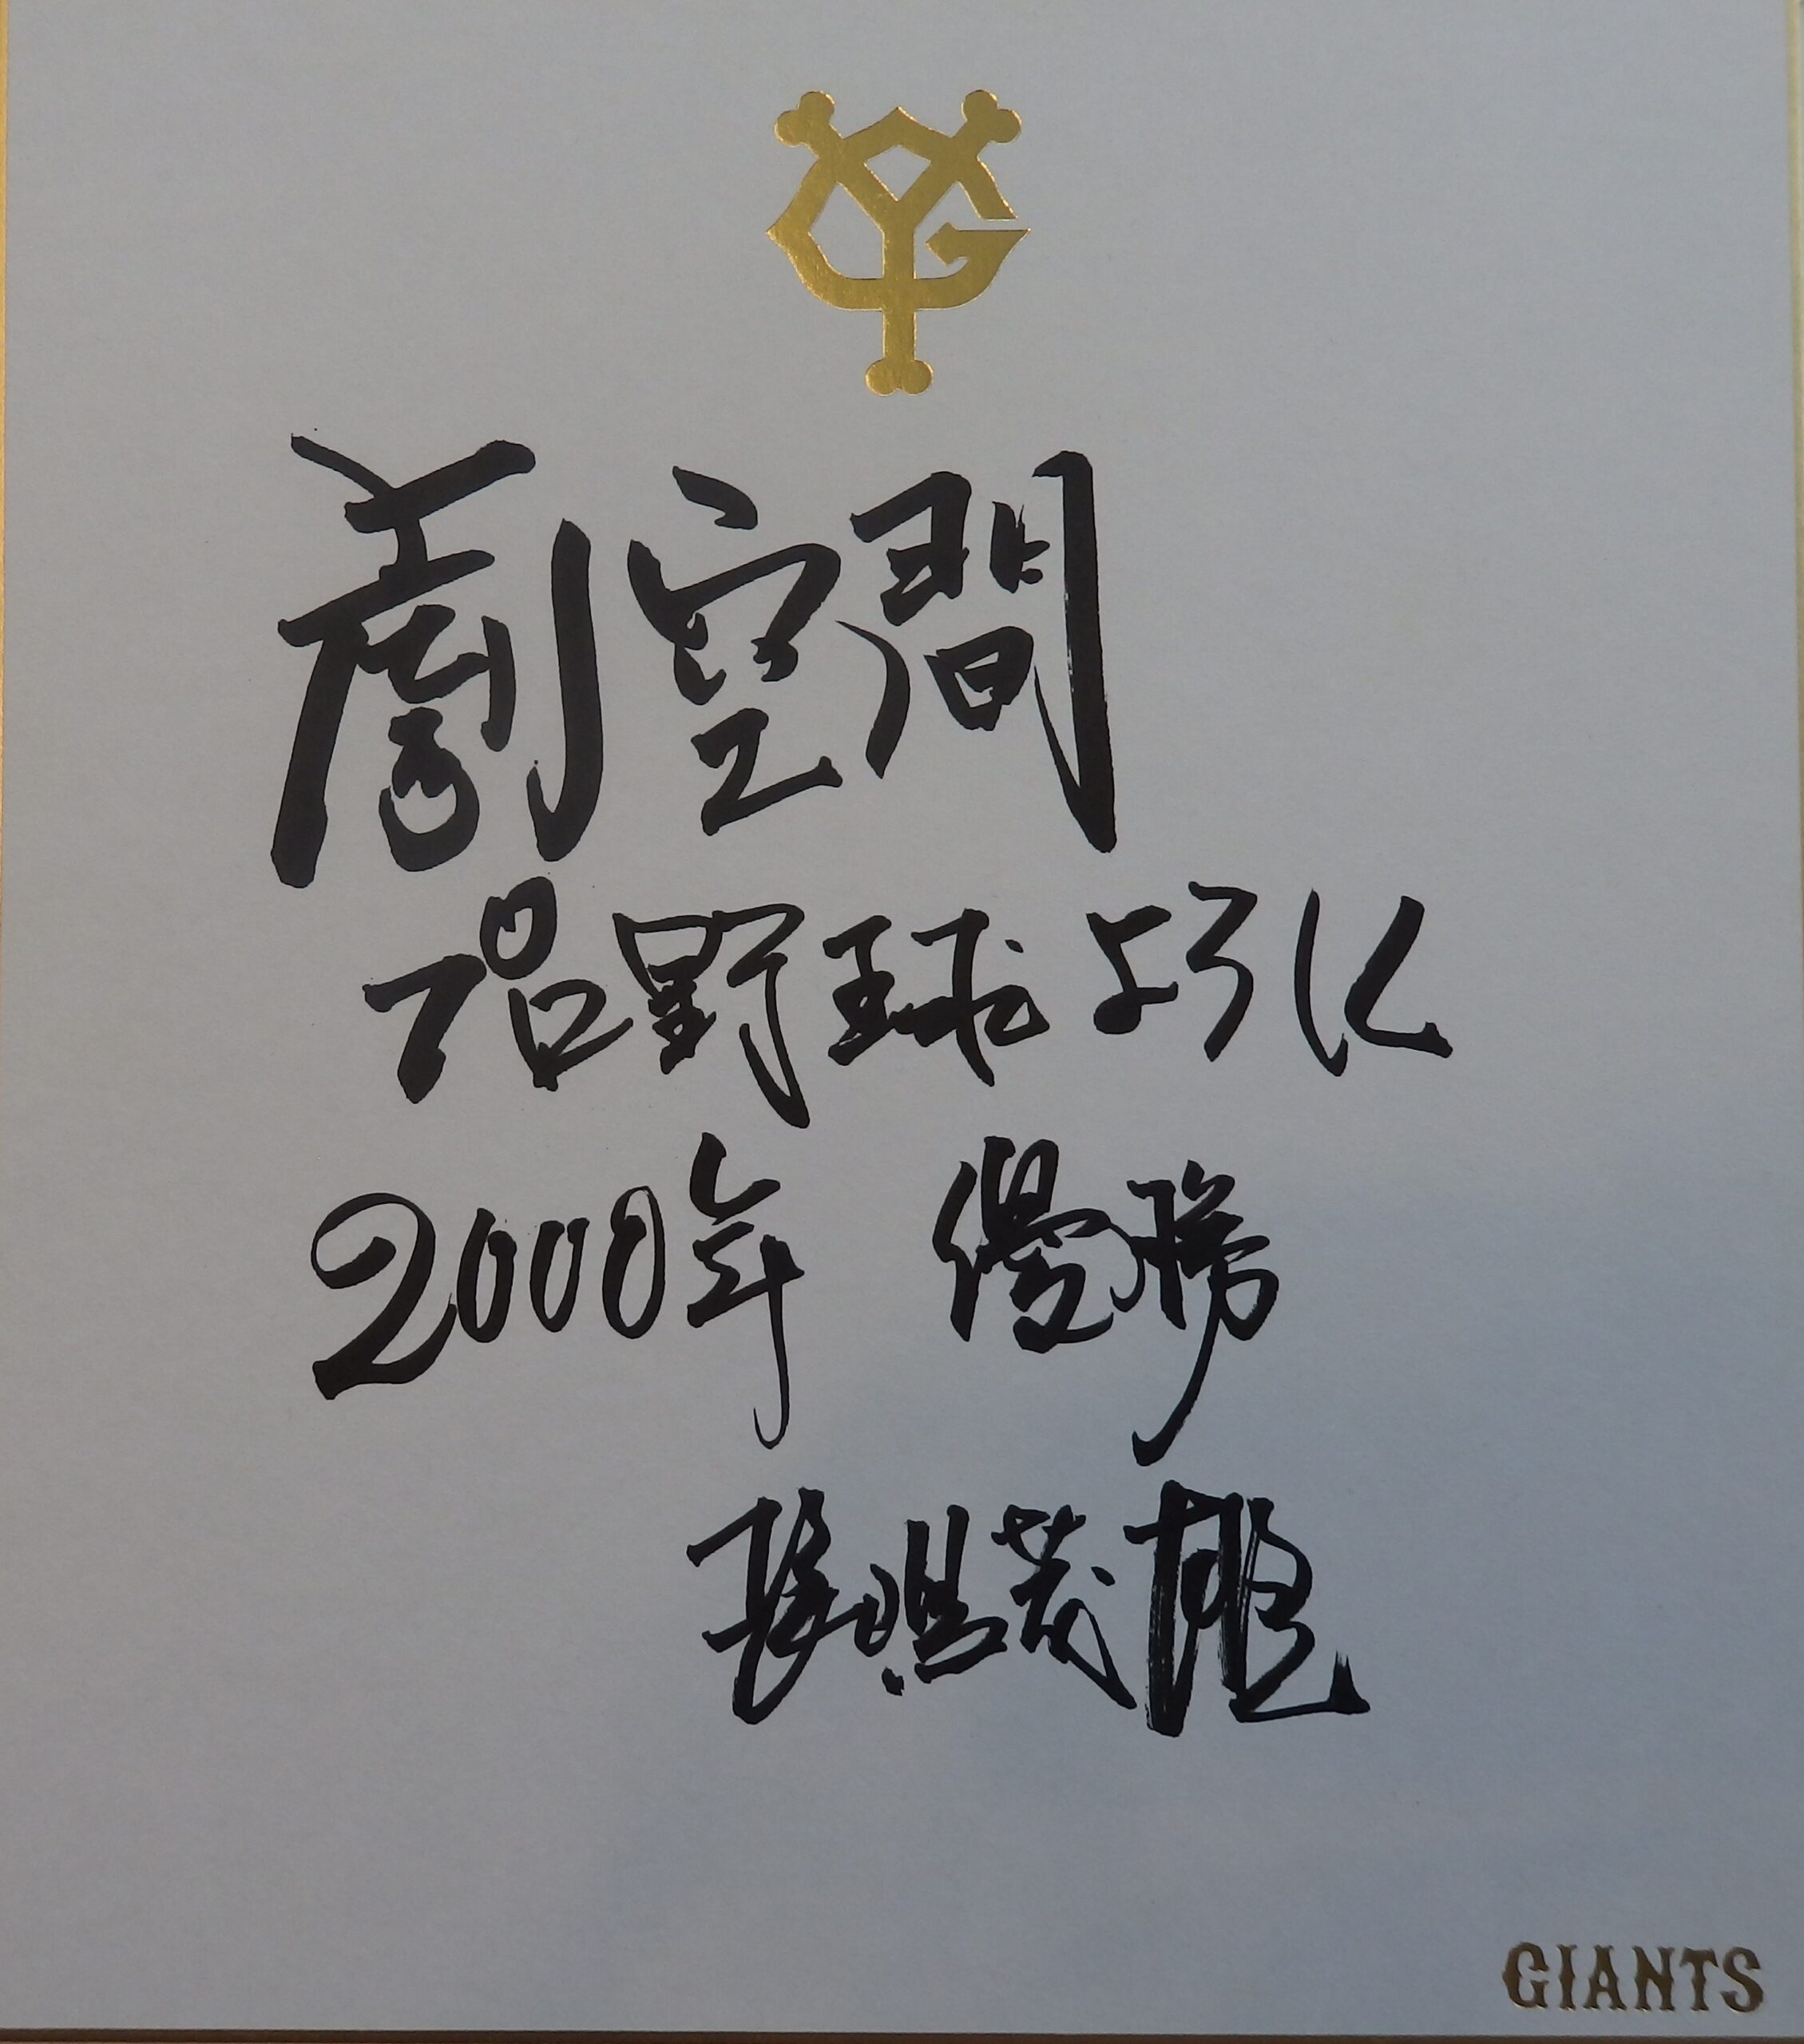 劇空間
プロ野球よろしく
2000年 優勝
長嶋茂雄
GIANTS